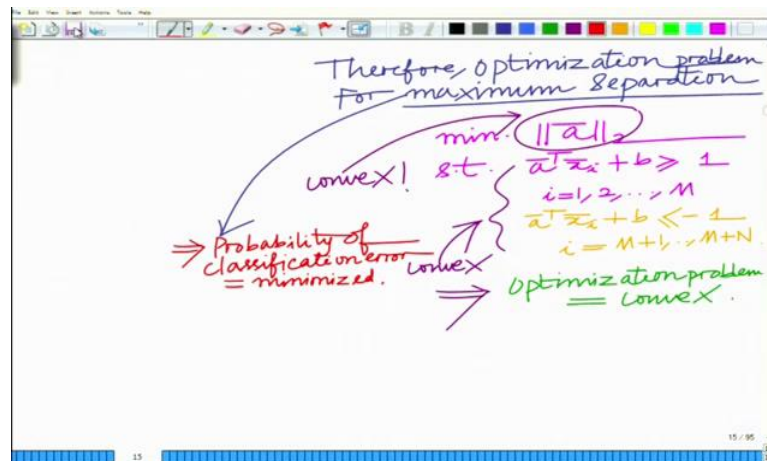 File Edit View Insert Actions Tools Help
Therefore, optimization problem
For maximum separation
min. ||a̅||₂
convex! s.t. a̅ᵀx̅ᵢ + b ⩾ 1
i=1, 2, ..., M
a̅ᵀx̅ᵢ + b ⩽ -1
i = M+1, .., M+N.
⇒ Probability of
classification error
= minimized.
convex
⇒ optimization problem
= convex.
15 / 95
15